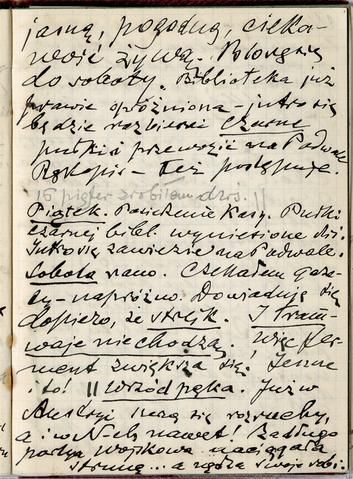 jasną, pogodną, cieka-
wość żywą.
do soboty. Biblioteka już
prawie opróżniona – jutro się
będzie rozbierać Czarne
półki i przewozić na Padwale
Rękopis – też postępuje.
16 zrobiłem dziś. ||
Piątek. Półki
czarnej bibl. wyniesione dziś.
Jutro się zawiezie na Padwale.
Sobota rano. Czekałem gaze-
ty – napróżno. Dowiaduję się
dopiero, że strejk. I tram-
waje nie chodzą. Więc fer-
ment zwiększa się! Jeszcze
i to! || Wrzód pęka. Już w
Austryi są rozruchy,
a i w N-ch nawet! Za długo
partya wojskowa naciągała
strunę... a swoje robi.